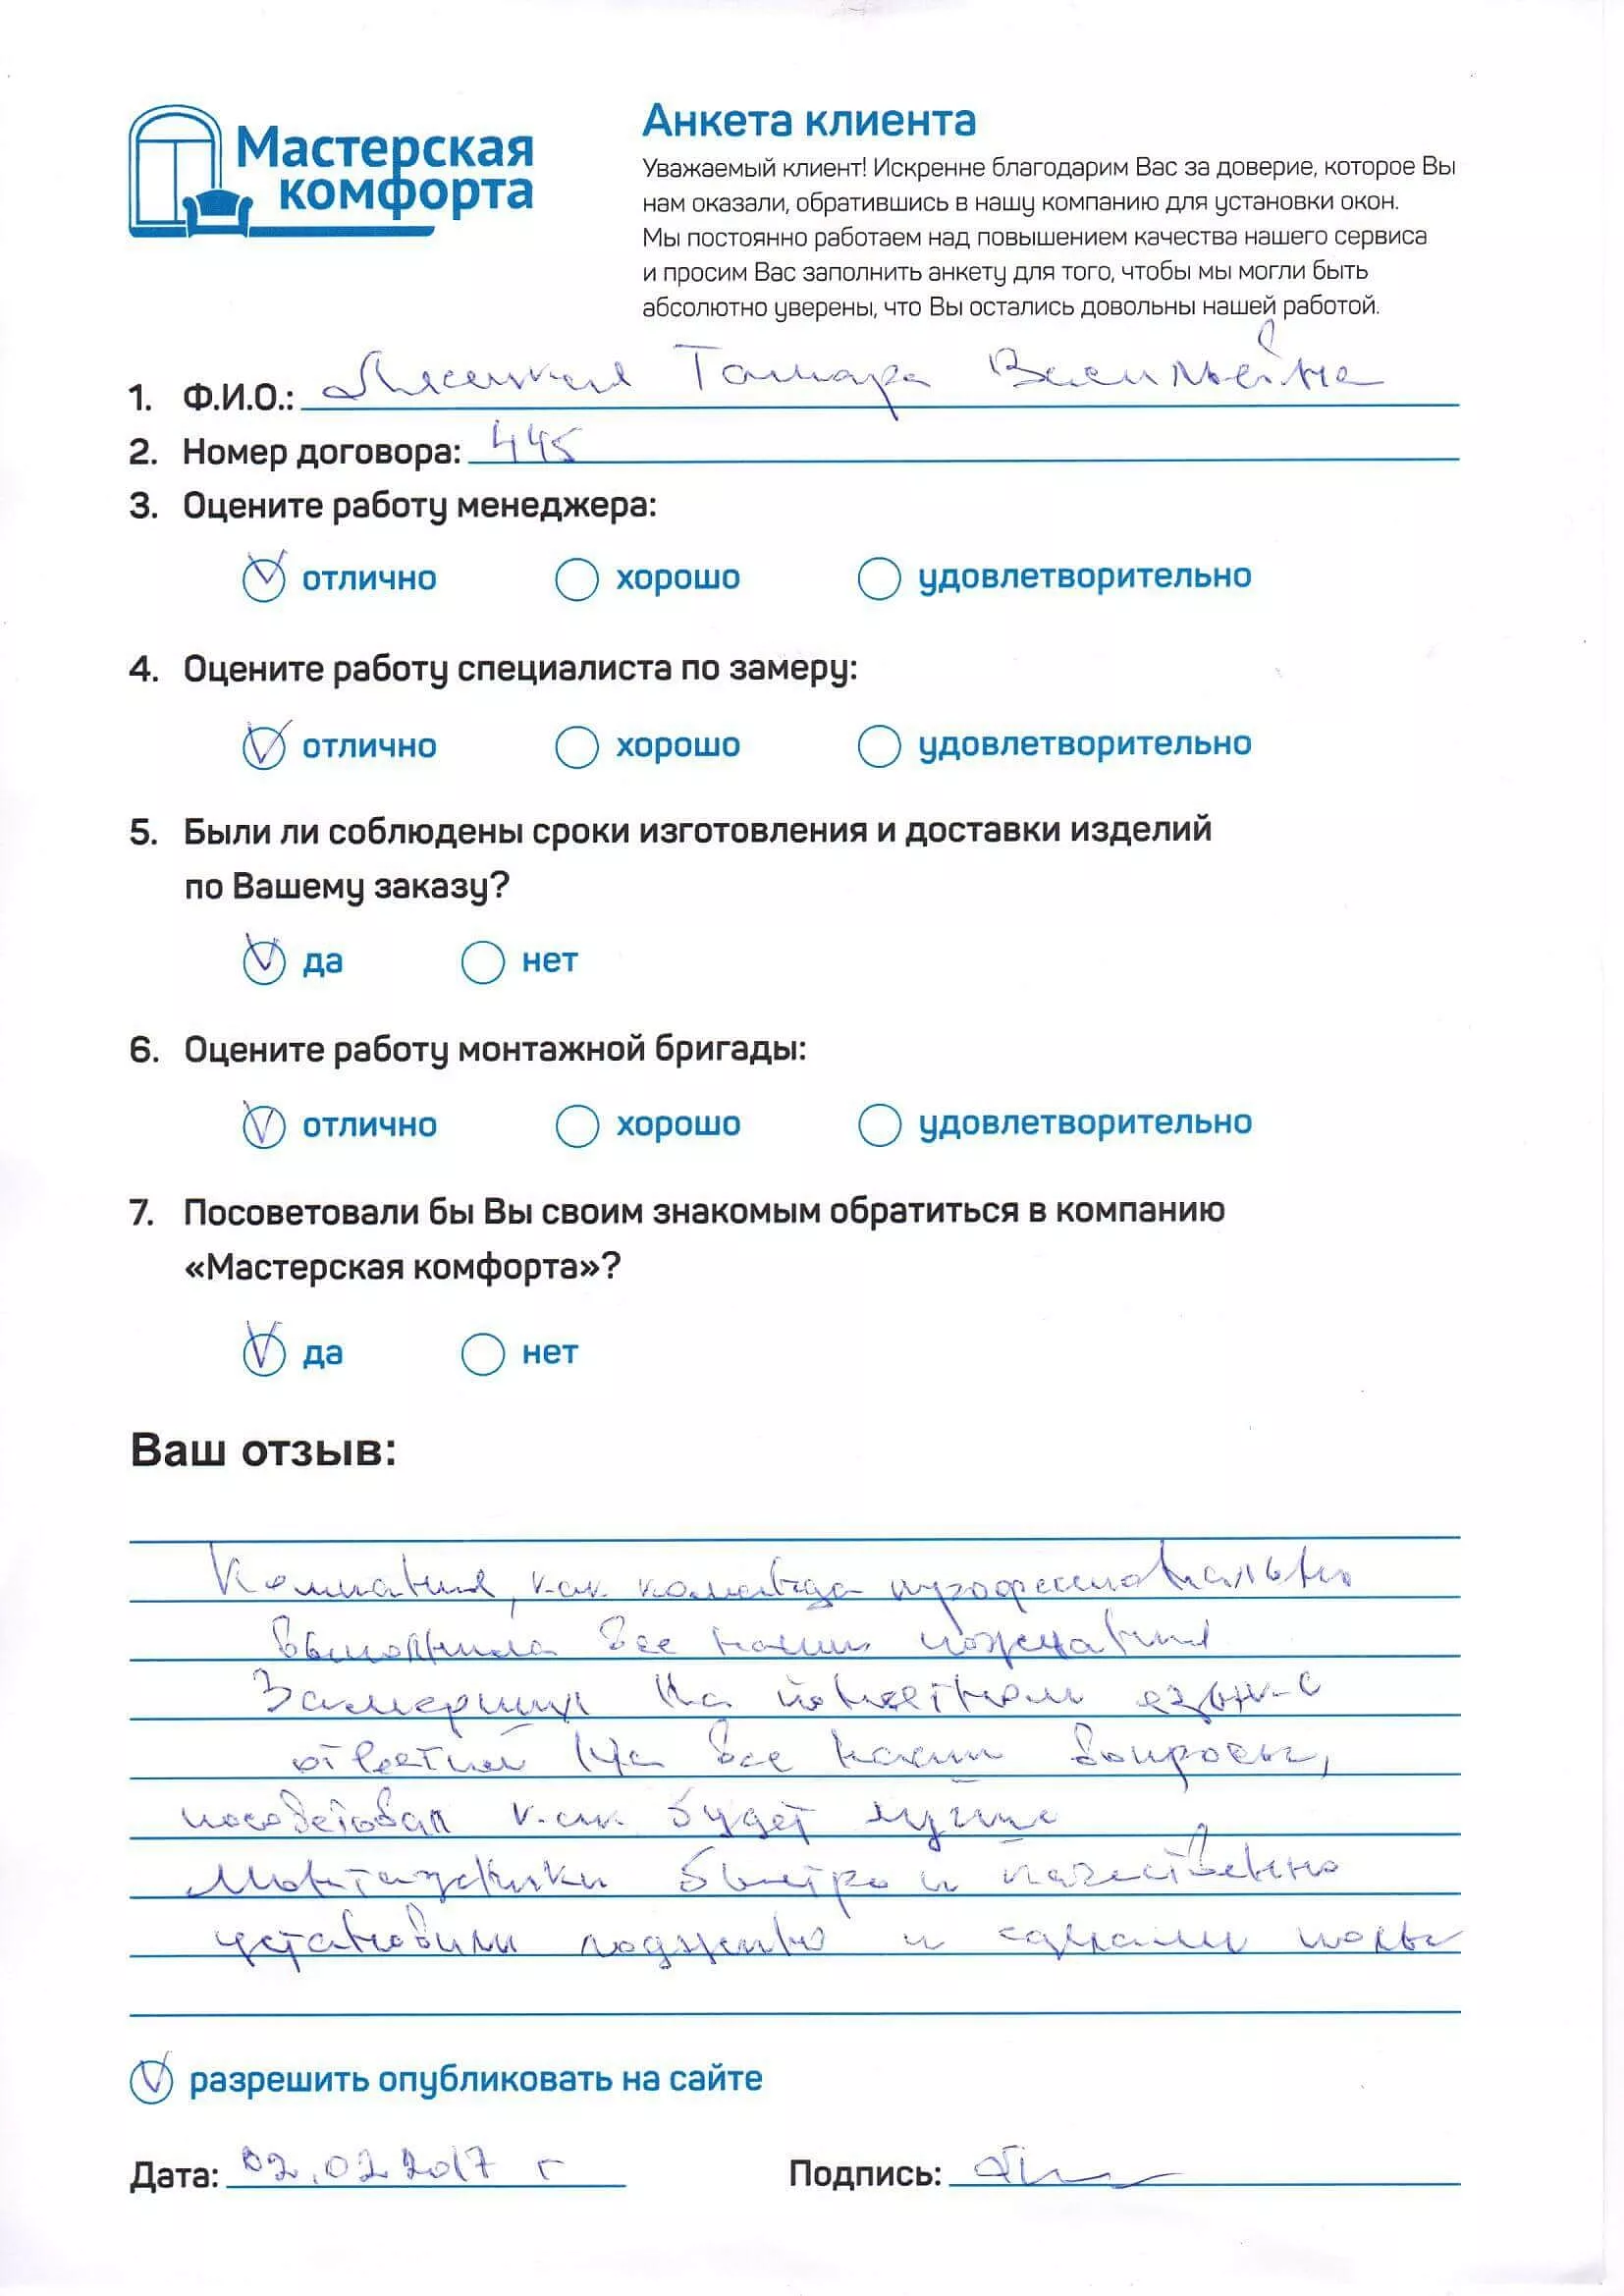 Мастерская
комфорта
Анкета клиента
Уважаемый клиент! Искренне благодарим Вас за доверие, которое Вы
нам оказали, обратившись в нашу компанию для установки окон.
Мы постоянно работаем над повышением качества нашего сервиса
и просим Вас заполнить анкету для того, чтобы мы могли быть
абсолютно уверены, что Вы остались довольны нашей работой.
1. Ф.И.О.: Тамара Васильевна
2. Номер договора: 445
3. Оцените работу менеджера:
отлично хорошо удовлетворительно
4. Оцените работу специалиста по замеру:
отлично хорошо удовлетворительно
5. Были ли соблюдены сроки изготовления и доставки изделий
по Вашему заказу?
да нет
6. Оцените работу монтажной бригады:
отлично хорошо удовлетворительно
7. Посоветовали бы Вы своим знакомым обратиться в компанию
«Мастерская комфорта»?
да нет
Ваш отзыв:
Компания, как команда профессионально
выполнила все наши пожелания
Замерщик на понятном языке
ответил на все наши вопросы,
посоветовал как будет лучше
Монтажники быстро и качественно
установили лоджию и сделали полы
разрешить опубликовать на сайте
Дата: 02.02 2017 г Подпись: